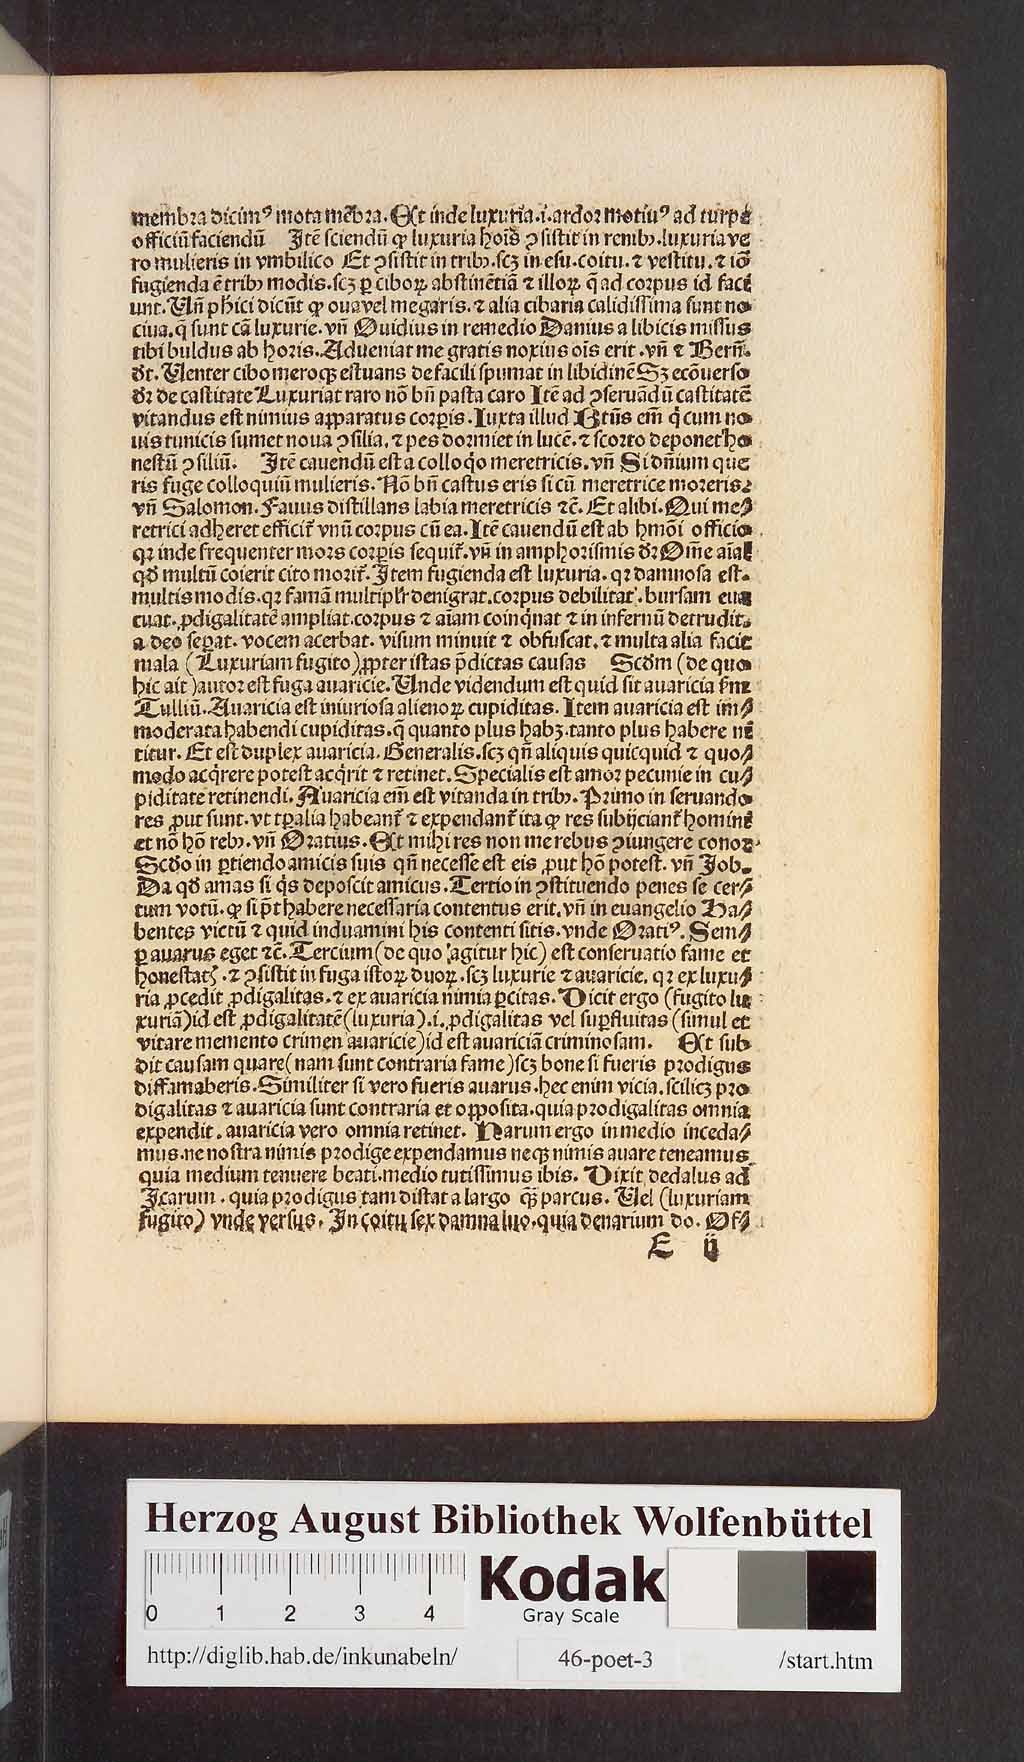 membra dicimꝰ mota mẽbra. Est inde luxuria.i.ardor motiuꝰ ad turpe
officiũ faciendũ Itẽ sciendũ ꝙ luxuria hoĩs ꝯsistit in renibꝫ.luxuria ve
ro mulieris in vmbilico Et ꝯsistit in tribꝫ.scꝫ in esu.coitu.⁊ vestitu.⁊ iõ
fugienda ẽ tribꝫ modis.scꝫ ꝑ ciboꝝ abstinẽtiã ⁊ illoꝝ q̃ ad corpus id faci
unt. Vñ phici dicũt ꝙ oua vel megaris.⁊ alia cibaria calidissima sunt no
ciua.q̃ sunt cã luxurie.vñ Ouidius in remedio Danius a libicis missus
tibi buldus ab horis.Adueniat me gratis noxius oĩs erit.vñ ⁊ Berñ.
dt. Venter cibo meroqꝫ estuans de facili spumat in libidinẽ Sꝫ ecõuerso
dr̃ de castitate Luxuriat raro nõ bñ pasta caro Itẽ ad ꝯseruãdũ castitatẽ
vitandus est nimius apparatus corꝑis.Iuxta illud Btũs em̃ q̇ cum no
uis tunicis sumet noua ꝯsilia.⁊ pes dormiet in lucẽ.⁊ scorto deponet ho
nestũ ꝯsiliũ. Itẽ cauendũ est a colloq̇o meretricis.vñ Si dñium que
ris fuge colloquiũ mulieris. Nõ bñ castus eris si cũ meretrice moreris.
vñ Salomon.Fauus distillans labia meretricis ⁊c̃. Et alibi.Qui me⸗
retrici adheret efficit᷑ vnũ corpus cũ ea.Itẽ cauendũ est ab hmõi officio
qꝛ inde frequenter mors corꝑis sequit᷑.vñ in amphorismis dr̃ Om̃e aĩal
qd̃ multũ coierit cito morit᷑. Item fugienda est luxuria.qꝛ damnosa est.
multis modis.qꝛ famã multiplr̃ denigrat.corpus debilitat.bursam eua
cuat.ꝓdigalitatẽ ampliat.corpus ⁊ aĩam coinq̇nat ⁊ in infernũ detrudit.
a deo seꝑat.vocem acerbat.visum minuit ⁊ obfuscat.⁊ multa alia facit
mala (Luxuriam fugito)ꝓpter istas p̃dictas causas Scdm (de quo
hic ait)autor est fuga auaricie. Vnde videndum est quid sit auaricia ẜm
Tulliũ.Auaricia est iniuriosa alienoꝝ cupiditas.Item auaricia est im⸗
moderata habendi cupiditas.q̃ quanto plus habꝫ.tanto plus habere ni
titur. Et est duplex auaricia.Generalis.scꝫ qñ aliquis quicquid ⁊ quo⸗
modo acq̇rere potest acq̇rit ⁊ retinet.Specialis est amor pecunie in cu⸗
piditate retinendi.Auaricia em̃ est vitanda in tribꝫ. Primo in seruando
res ꝓut sunt.vt tꝑalia habeant᷑ ⁊ expendant᷑ ita ꝙ res subijciant᷑ homini
et nõ hõ rebꝫ.vñ Oratius. Et mihi res non me rebus ꝯiungere conor
Scd̃o in ꝑtiendo amicis suis qñ necesse est eis ꝓut hõ potest.vñ Job.
Da qd̃ amas si q̇s deposcit amicus.Tertio in ꝯstituendo penes se cer⸗
tum votũ.ꝙ si p̃t habere necessaria contentus erit.vñ in euangelio Ha⸗
bentes victũ ⁊ quid induamini his contenti sitis.vnde Oratiꝰ. Sem⸗
ꝑ auarus eget ⁊c̃. Tercium (de quo agitur hic) est conseruatio fame et
honestatꝭ.⁊ ꝯsistit in fuga istoꝝ duoꝝ.scꝫ luxurie ⁊ auaricie.qꝛ ex luxu⸗
ria ꝓcedit ꝓdigalitas.⁊ ex auaricia nimia ꝑcitas. Dicit ergo (fugito lu
xuriã)id est ꝓdigalitatẽ(luxuria).i.ꝓdigalitas vel suꝑfluitas (simul et
vitare memento crimen auaricie)id est auariciã criminosam. Et sub
dit causam quare(nam sunt contraria fame)scꝫ bone si fueris prodigus
diffamaberis.Similiter si vero fueris auarus.hec enim vicia.scilicꝫ pro
digalitas ⁊ auaricia sunt contraria et opposita.quia prodigalitas omnia
expendit.auaricia vero omnia retinet. Harum ergo in medio inceda⸗
mus.ne nostra nimis prodige expendamus neqꝫ nimis auare teneamus
quia medium tenuere beati.medio tutissimus ibis. Dixit dedalus ad
Icarum.quia prodigus tam distat a largo qꝫ̃ parcus. Vel (luxuriam
fugito) vnde versus. In coitu sex damna luo.quia denarium do. Of⸗
E ij
Herzog August Bibliothek Wolfenbüttel
0 1 2 3 4
Kodak
Gray Scale
http://diglib.hab.de/inkunabeln/ 46-poet-3 /start.htm